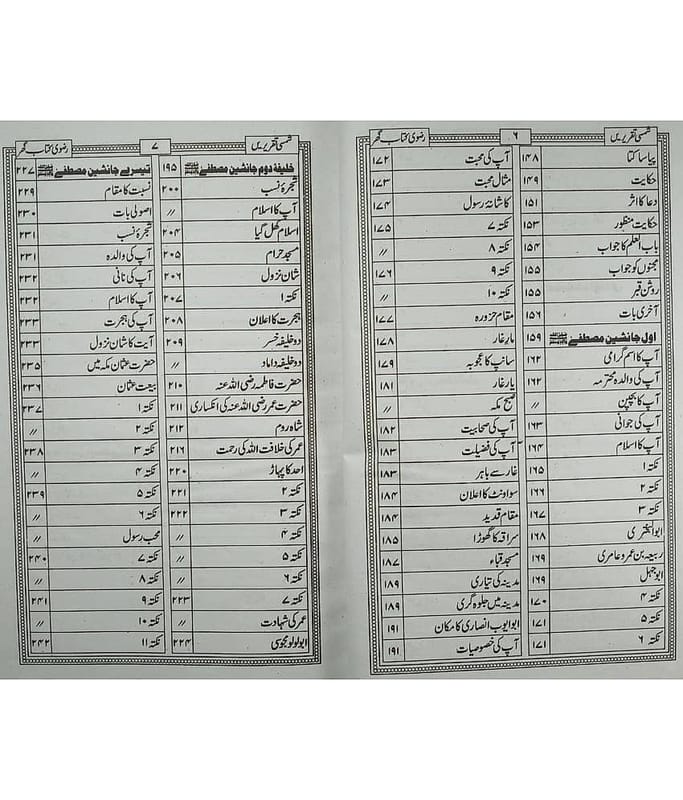 شمسی تقریریں ۶ رضوی کتاب گھر
پیاسا کتا ۱۴۸
حکایت ۱۴۹
دعا کا اثر ۱۵۱
حکایت منظور ۱۵۳
باب العلم کا جواب ۱۵۴
مجنوں کو جواب ۱۵۵
روشن قبر ۱۵۵
آخری بات ۱۵۶
اول جانشین مصطفےٰ ﷺ ۱۵۹
آپ کا اسم گرامی ۱۶۲
آپ کی والدہ محترمہ ۱۶۲
آپ کا بچپن //
آپ کی جوانی ۱۶۳
آپ کا اسلام ۱۶۴
نکتہ ۱ ۱۶۵
نکتہ ۲ ۱۶۶
نکتہ ۳ ۱۶۷
ابوالبختری ۱۶۸
ربیعہ بن عمرو عامری ۱۶۹
ابوجہل ۱۶۹
نکتہ ۴ ۱۷۰
نکتہ ۵ ۱۷۱
نکتہ ۶ ۱۷۱
آپ کی محبت ۱۷۲
مثال محبت ۱۷۳
کاشانۂ رسول ۱۷۴
نکتہ ۷ ۱۷۵
نکتہ ۸ //
نکتہ ۹ ۱۷۶
نکتہ ۱۰ //
مقام حزورہ ۱۷۷
مار غار ۱۷۸
سانپ کا عجوبہ ۱۷۹
یار غار ۱۸۱
صبح مکہ //
آپ کی صحابیت ۱۸۲
آپ کی فضیلت ۱۸۳
غار سے باہر ۱۸۳
سو اونٹ کا اعلان ۱۸۴
مقام قدید ۱۸۴
سراقہ کا گھوڑا ۱۸۵
مسجد قباء ۱۸۷
مدینہ کی تیاری ۱۸۹
مدینہ میں جلوہ گری ۱۸۹
ابوایوب انصاری کا مکان ۱۹۱
آپ کی خصوصیات ۱۹۱
شمسی تقریریں ۷ رضوی کتاب گھر
خلیفہ دوم جانشین مصطفےٰ ﷺ ۱۹۵
شجرۂ نسب ۲۰۰
آپ کا اسلام //
اسلام کھل گیا ۲۰۴
مسجد حرام ۲۰۵
شان نزول ۲۰۶
نکتہ ۱ ۲۰۷
ہجرت کا اعلان ۲۰۸
دو خلیفہ خسر ۲۰۹
دو خلیفہ داماد //
حضرت فاطمہ رضی اللہ عنہ ۲۱۰
حضرت عمر رضی اللہ عنہ کی انکساری ۲۱۱
شاہ روم ۲۱۲
عمر کی خلافت اللہ کی رحمت ۲۱۶
احد کا پہاڑ ۲۲۰
نکتہ ۲ ۲۲۱
نکتہ ۳ ۲۲۲
نکتہ ۴ //
نکتہ ۵ //
نکتہ ۶ //
نکتہ ۷ ۲۲۳
عمر کی شہادت //
ابولولو مجوسی ۲۲۴
تیسرے جانشین مصطفےٰ ﷺ ۲۲۷
نسبت کا مقام ۲۲۹
اصولی بات ۲۳۰
شجرۂ نسب ۲۳۱
آپ کی والدہ ۲۳۱
آپ کی نانی ۲۳۲
آپ کا اسلام ۲۳۲
آپ کی ہجرت ۲۳۳
آیت کا شان نزول ۲۳۳
حضرت عثمان مکہ میں ۲۳۵
بیعت عثمان ۲۳۶
نکتہ ۱ ۲۳۷
نکتہ ۲ //
نکتہ ۳ ۲۳۸
نکتہ ۴ //
نکتہ ۵ ۲۳۹
نکتہ ۶ //
محب رسول //
نکتہ ۷ ۲۴۰
نکتہ ۸ //
نکتہ ۹ ۲۴۱
نکتہ ۱۰ //
نکتہ ۱۱ ۲۴۲